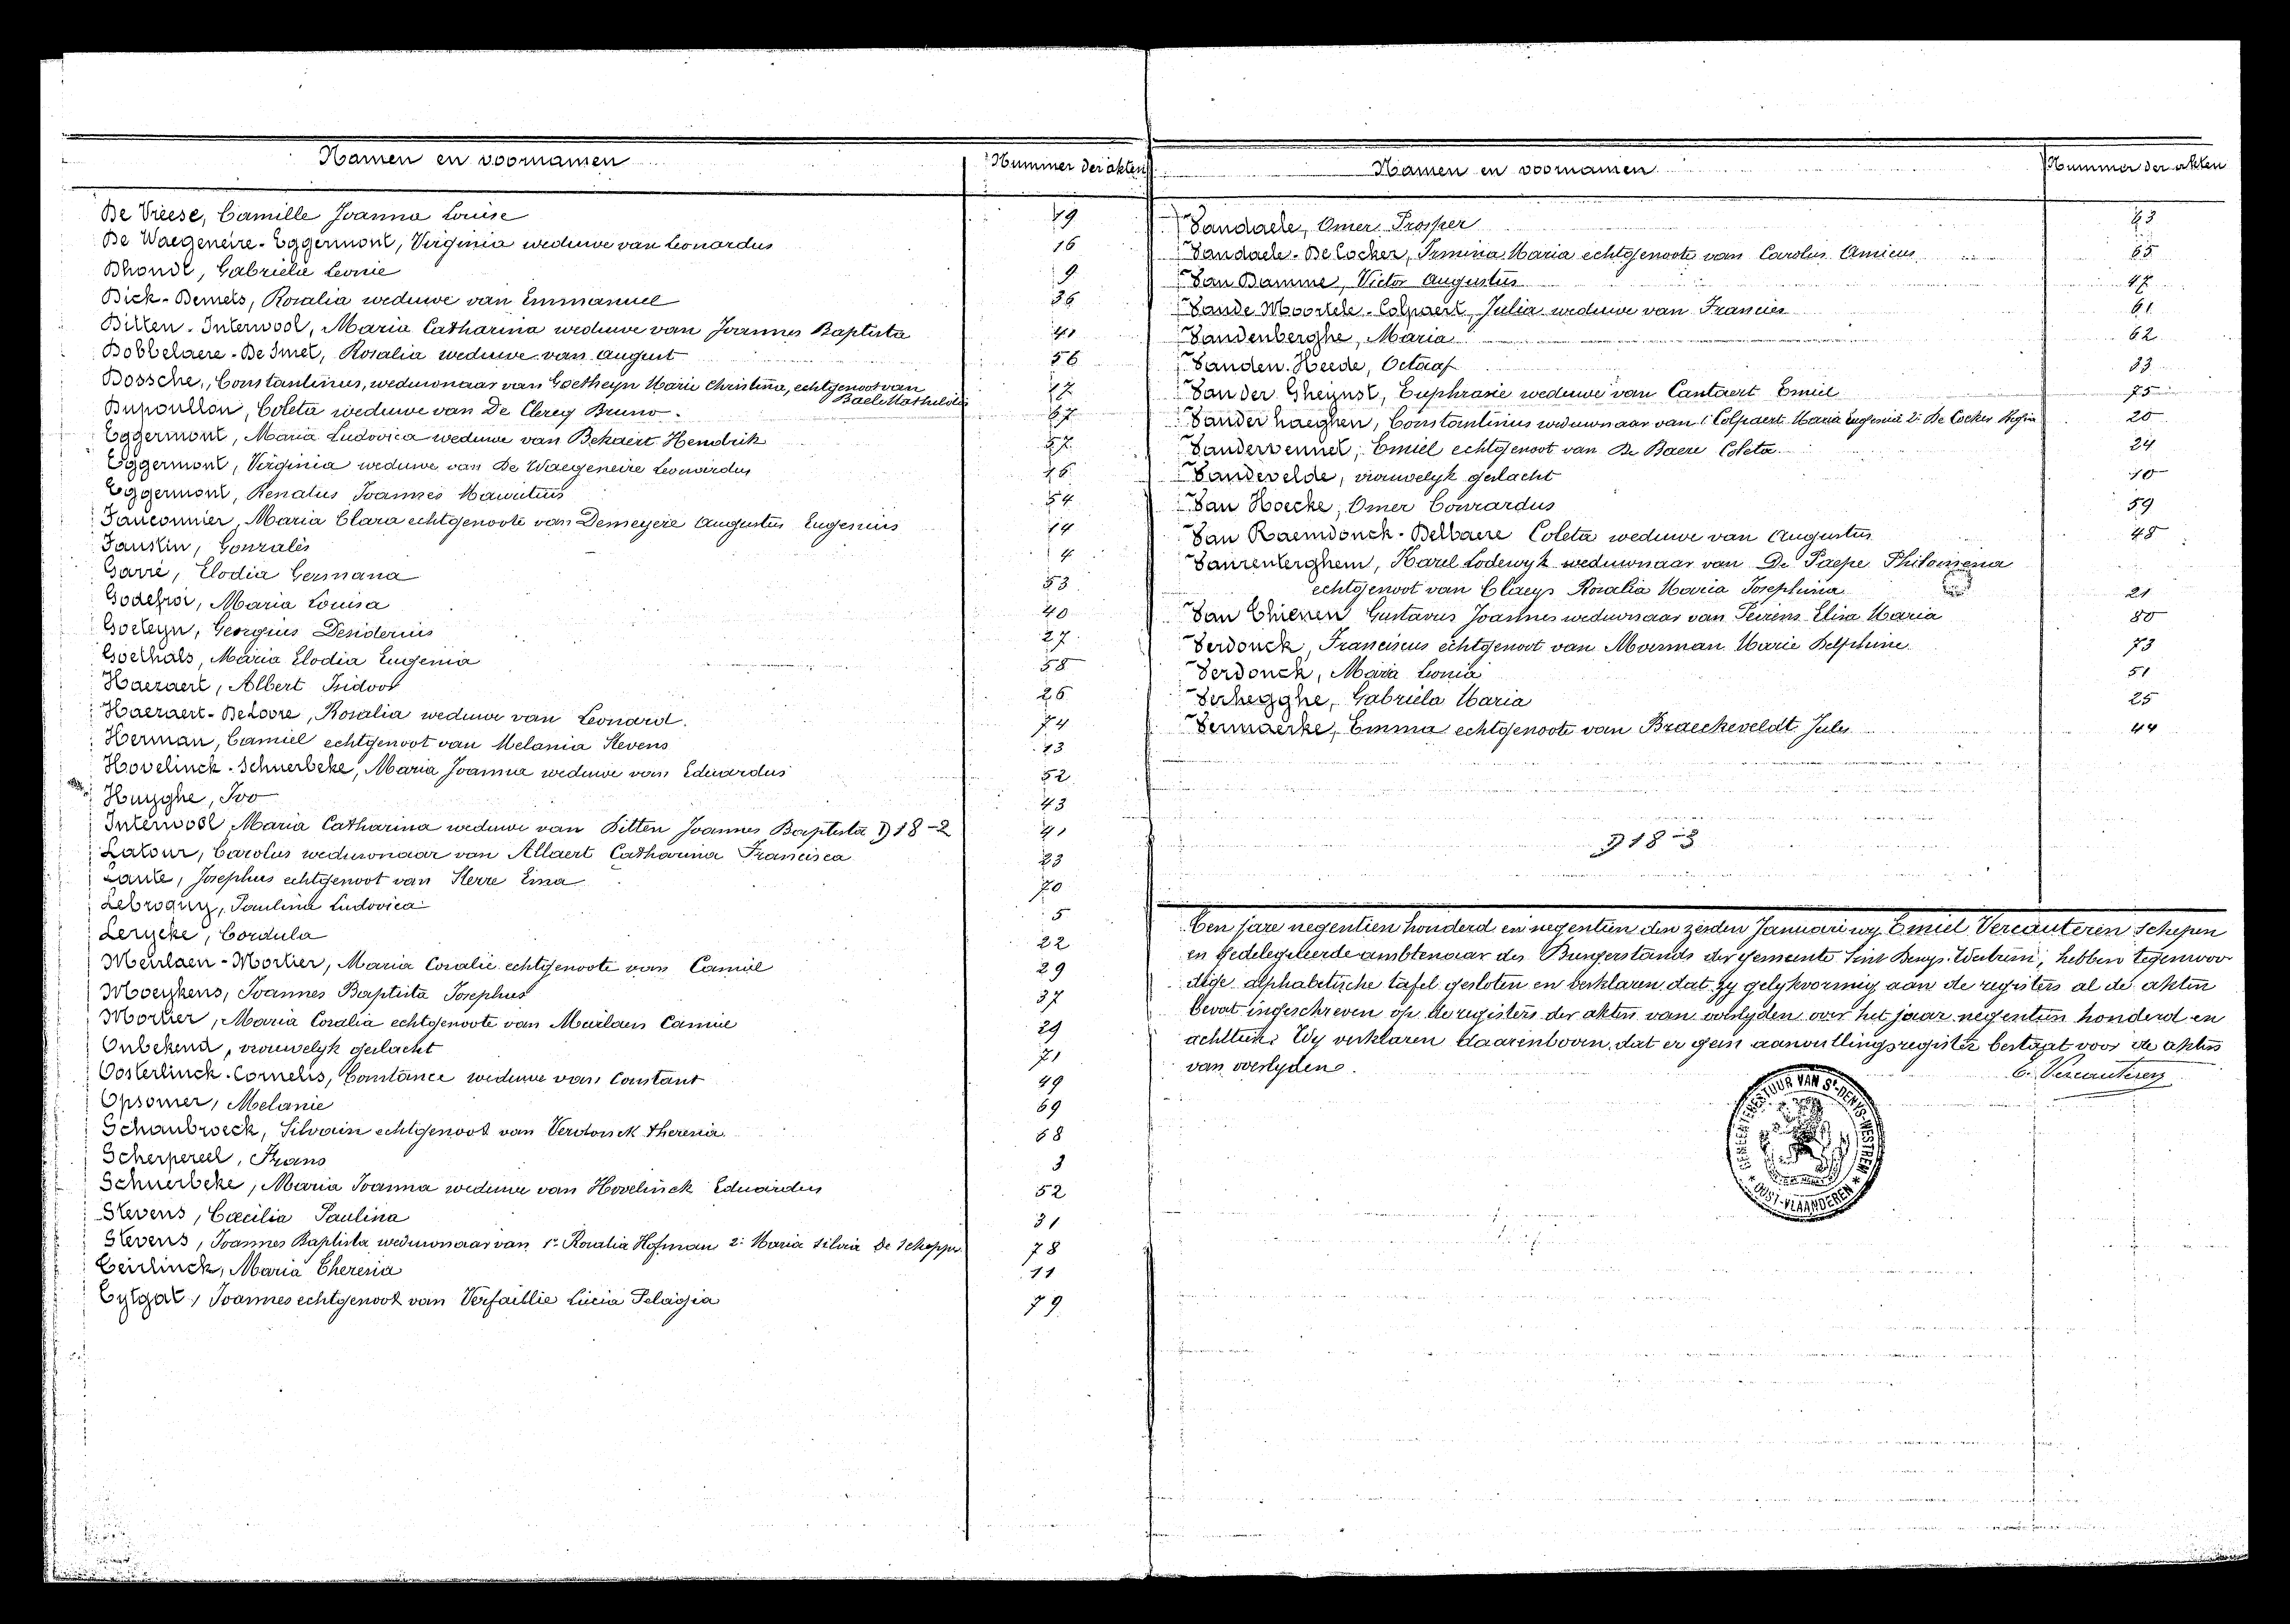 Namen en voornamen
Nummer der akten
De Vreese, Camille Joanna Louise 19
De Waegeneire-Eggermont, Virginia weduwe van Leonardus 16
Dhondt, Gabrielle Leonie 9
Dick-Bemels, Rosalia weduwe van Emmanuel 36
Ditten-Interwool, Maria Catharina weduwe van Joannes Baptista 41
Dobbelaere-De Smet, Rosalia weduwe van August 56
Dossche, Constantinus, weduwnaar van Goetheyn Marie Christina, echtgenoot van
Baele Mathilde 17
Dupoullon, Coleta weduwe van De Clercq Bruno 67
Eggermont, Maria Ludovica weduwe van Bekaert Hendrik 57
Eggermont, Virginia weduwe van De Waegeneire Leonardus 16
Eggermont, Renatus Joannes Mauritius 54
Fauconnier, Maria Clara echtgenoote van Demeyere Augustus Eugenius 14
Faustin, Gonzalès 4
Garré, Elodia Germana 53
Godefroi, Maria Louisa 40
Goeteyn, Georgius Desiderius 27
Goethals, Maria Elodia Eugenia 58
Haeraert, Albert Isidoor 26
Haeraert-Deloore, Rosalia weduwe van Leonard 74
Herman, Camiel echtgenoot van Melania Stevens 13
Hovelinck-Schuerbeke, Maria Joanna weduwe van Eduardus 52
Huyghe, Ivo 43
Interwool Maria Catharina weduwe van Ditten Joannes Baptista D 18-2 41
Latour, Carolus weduwnaar van Allaert Catharina Francisca 23
Laute, Josephus echtgenoot van Sterre Ema 70
Lebroquy, Paulina Ludovica 5
Lerycke, Cordula 22
Meirlaen-Mortier, Maria Coralie echtgenoote van Camiel 29
Moerykens, Joannes Baptista Josephus 37
Mortier, Maria Coralia echtgenoote van Meirlaen Camiel 29
Onbekend, vrouwelyk geslacht 71
Oosterlinck-Cornelis, Constance weduwe van Constant 49
Opsomer, Melanie 69
Schaubroeck, Silvain echtgenoot van Verdonck Theresia 68
Scherpereel, Frans 3
Schuerbeke, Maria Joanna weduwe van Hovelinck Eduardus 52
Stevens, Cæcilia Paulina 31
Stevens, Joannes Baptista weduwnaar van 1° Rosalia Hofman 2° Maria Silvia De Schepper 78
Teirlinck, Maria Theresia 11
Tytgat, Joannes echtgenoot van Verfaillie Lucia Pelagia 79
Namen en voornamen
Nummer der akten
Vandaele, Omer Prosper 63
Vandaele-De Cocker, Irmina Maria echtgenoote van Carolus Amicus 65
Van Damme, Victor Augustus 47
Vande Moortele-Colpaert, Julia weduwe van Francies 61
Vandenberghe, Maria 62
Vanden Heede, Octaaf 33
Van der Gheynst, Euphrasie weduwe van Cantaert Emiel 75
Vanderhaeghen, Constantinus weduwnaar van 1° Colpaert Maria Eugenia 2° De Cocker Regina 20
Vandervennet, Emiel echtgenoot van De Baere Coleta 24
Vandevelde, vrouwelyk geslacht 10
Van Hoecke, Omer Conrardus 59
Van Raemdonck-Delbaere Coleta weduwe van Augustus 48
Vanrenterghem, Karel Lodewyk weduwnaar van De Paepe Philomena
echtgenoot van Claeys Rosalia Maria Josephina 21
Van Thienen Gustavus Joannes weduwnaar van Peirens Elisa Maria 80
Verdonck, Franciscus echtgenoot van Moerman Marie Delphine 73
Verdonck, Maria Leonia 51
Verhegghe, Gabriela Maria 25
Vermaerke, Emma echtgenoote van Braeckeveldt Jules 44
D 18-3
Ten jare negentien honderd en negentien den zesden Januari wy Emiel Vercauteren Schepen
en gedelegeleerde ambtenaar des Burgerstands der gemeente Sint Denys-Westrem, hebben tegenwoor
dige alphabetische tafel gesloten en verklaren dat zy gelykvormig aan de registers al de akten
bevat ingeschreven op de registers der akten van overlyden over het jaar negentien honderd en
achttien. Wy verklaren daarenboven, dat er geen aanvullingsregister bestaat voor de akten
van overlyden.
E. Vercauteren
BESTUUR VAN ST-DENYS-WESTREM
OOST-VLAANDEREN